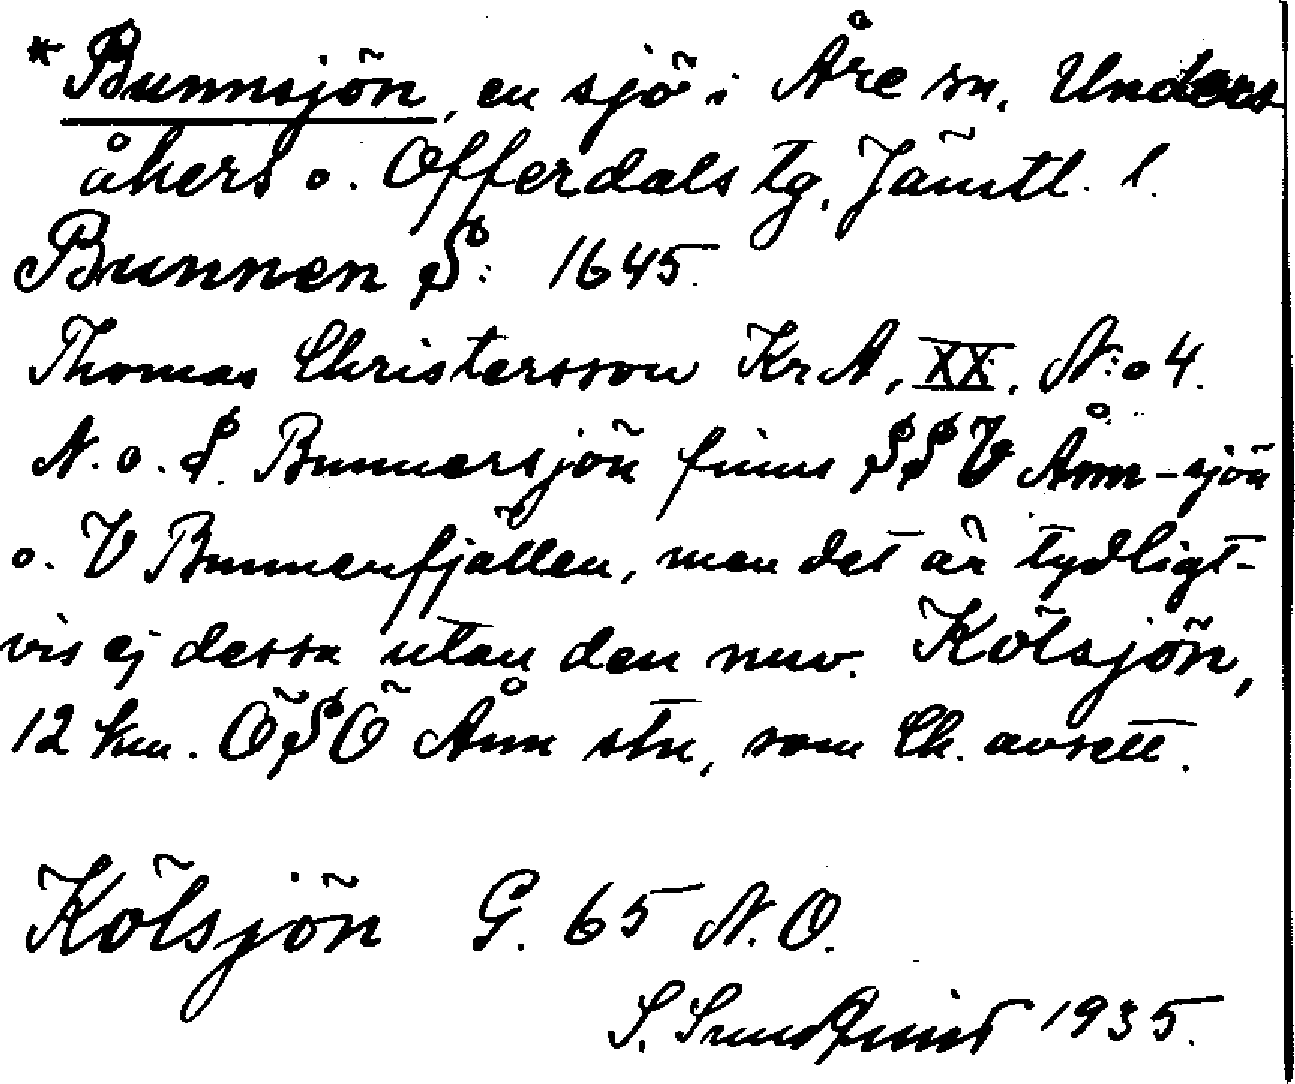 * Bunnsjön, en sjö i Åre sn. Unders
åkers o. Offerdals tg, Jämtl. l.
Bunnen S: 1645.
Thomas Christersson KrA, XX, N:o 4.
N. o. S. Bunnersjön finns SSV Ånn-sjön
o. V Bunnerfjällen, men det är tydligt-
vis ej dessa utan den nuv. Kölsjön,
12 km. ÖSÖ Ånn stn, som Ch. avsett.
Kölsjön G. 65 N.O.
S. 1935.